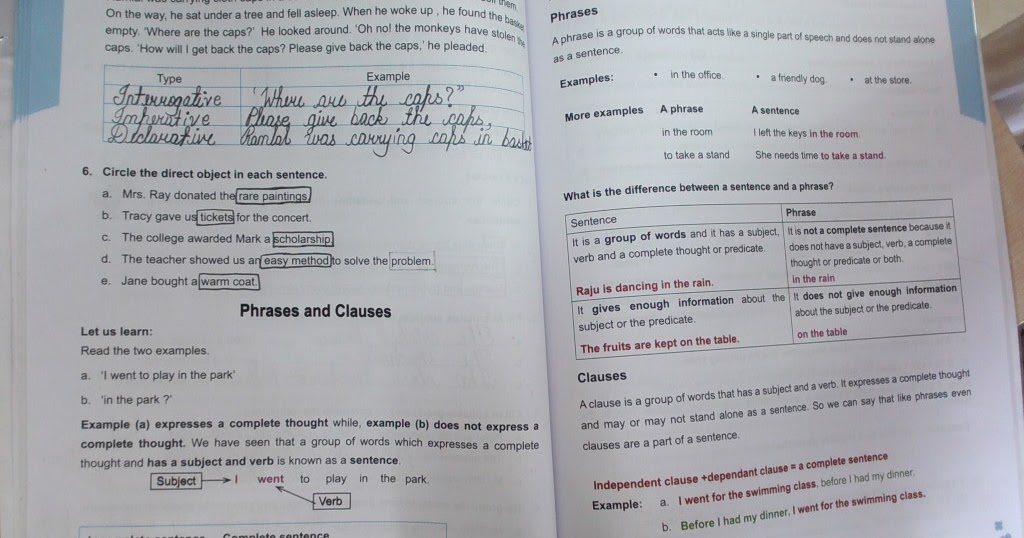 On the way, he sat under a tree and fell asleep. When he woke up , he found the
empty. 'Where are the caps?' He looked around. 'Oh no! the monkeys have stolen
caps. 'How will I get back the caps? Please give back the caps,' he pleaded.
Type Example
Interrogative 'Where are the caps?"
Imperative Please give back the caps,
Declarative Ramlal was carrying caps in
6. Circle the direct object in each sentence.
a. Mrs. Ray donated the rare paintings.
b. Tracy gave us tickets for the concert.
c. The college awarded Mark a scholarship.
d. The teacher showed us an easy method to solve the problem.
e. Jane bought a warm coat.
Phrases and Clauses
Let us learn:
Read the two examples.
a. 'I went to play in the park'
b. 'in the park ?'
Example (a) expresses a complete thought while, example (b) does not express a
complete thought. We have seen that a group of words which expresses a complete
thought and has a subject and verb is known as a sentence.
Subject I went to play in the park.
Verb
Complete sentence
Phrases
A phrase is a group of words that acts like a single part of speech and does not stand alone
as a sentence.
Examples: • in the office. • a friendly dog. • at the store.
More examples A phrase A sentence
in the room I left the keys in the room.
to take a stand She needs time to take a stand.
What is the difference between a sentence and a phrase?
Sentence
It is a group of words and it has a subject,
verb and a complete thought or predicate.
Raju is dancing in the rain.
It gives enough information about the
subject or the predicate.
The fruits are kept on the table.
Phrase
It is not a complete sentence because it
does not have a subject, verb, a complete
thought or predicate or both.
in the rain
It does not give enough information
about the subject or the predicate.
on the table
Clauses
A clause is a group of words that has a subject and a verb. It expresses a complete thought
and may or may not stand alone as a sentence. So we can say that like phrases even
clauses are a part of a sentence.
Independent clause +dependant clause = a complete sentence
Example: a. I went for the swimming class, before I had my dinner.
b. Before I had my dinner, I went for the swimming class.